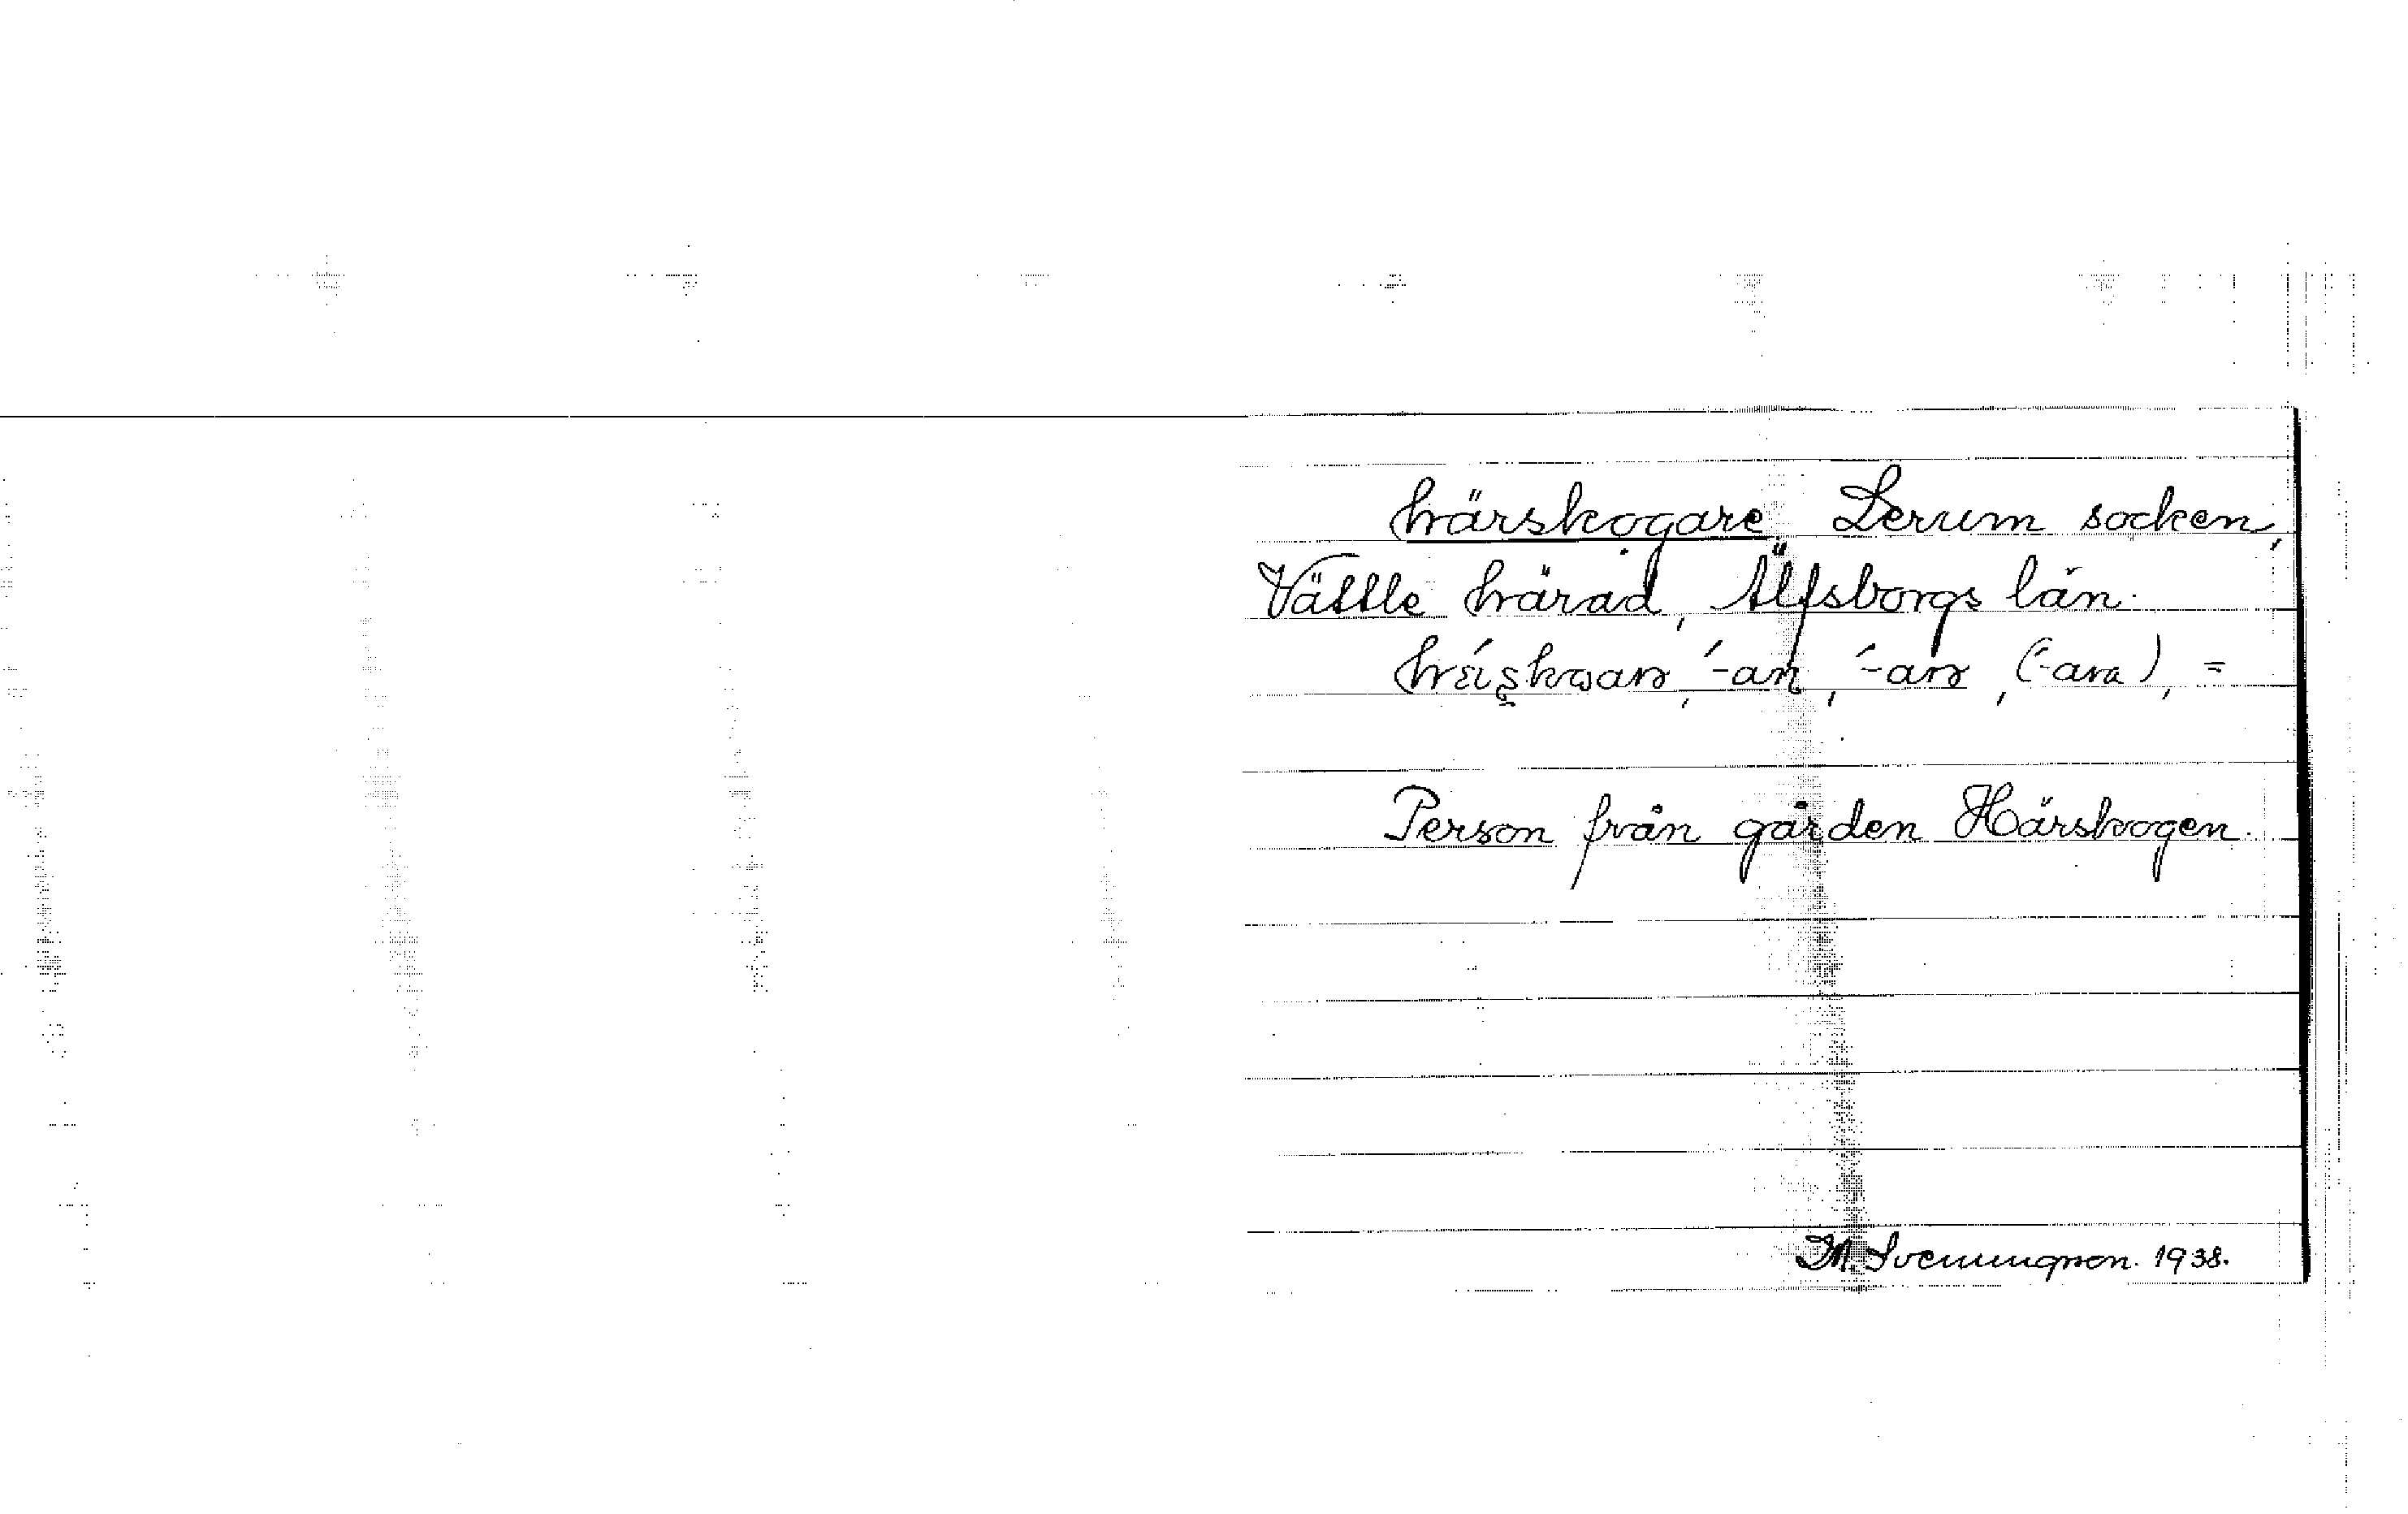 härskogare. Lerum socken,
Vättle härad, Älfsborgs län.
-an, -ar, (-ara), =
Person från gården Härskogen.
M. Svenungson. 1938.